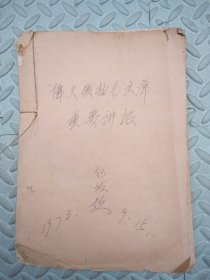 偉大領袖毛主席
重要讲话
1973.9.15.